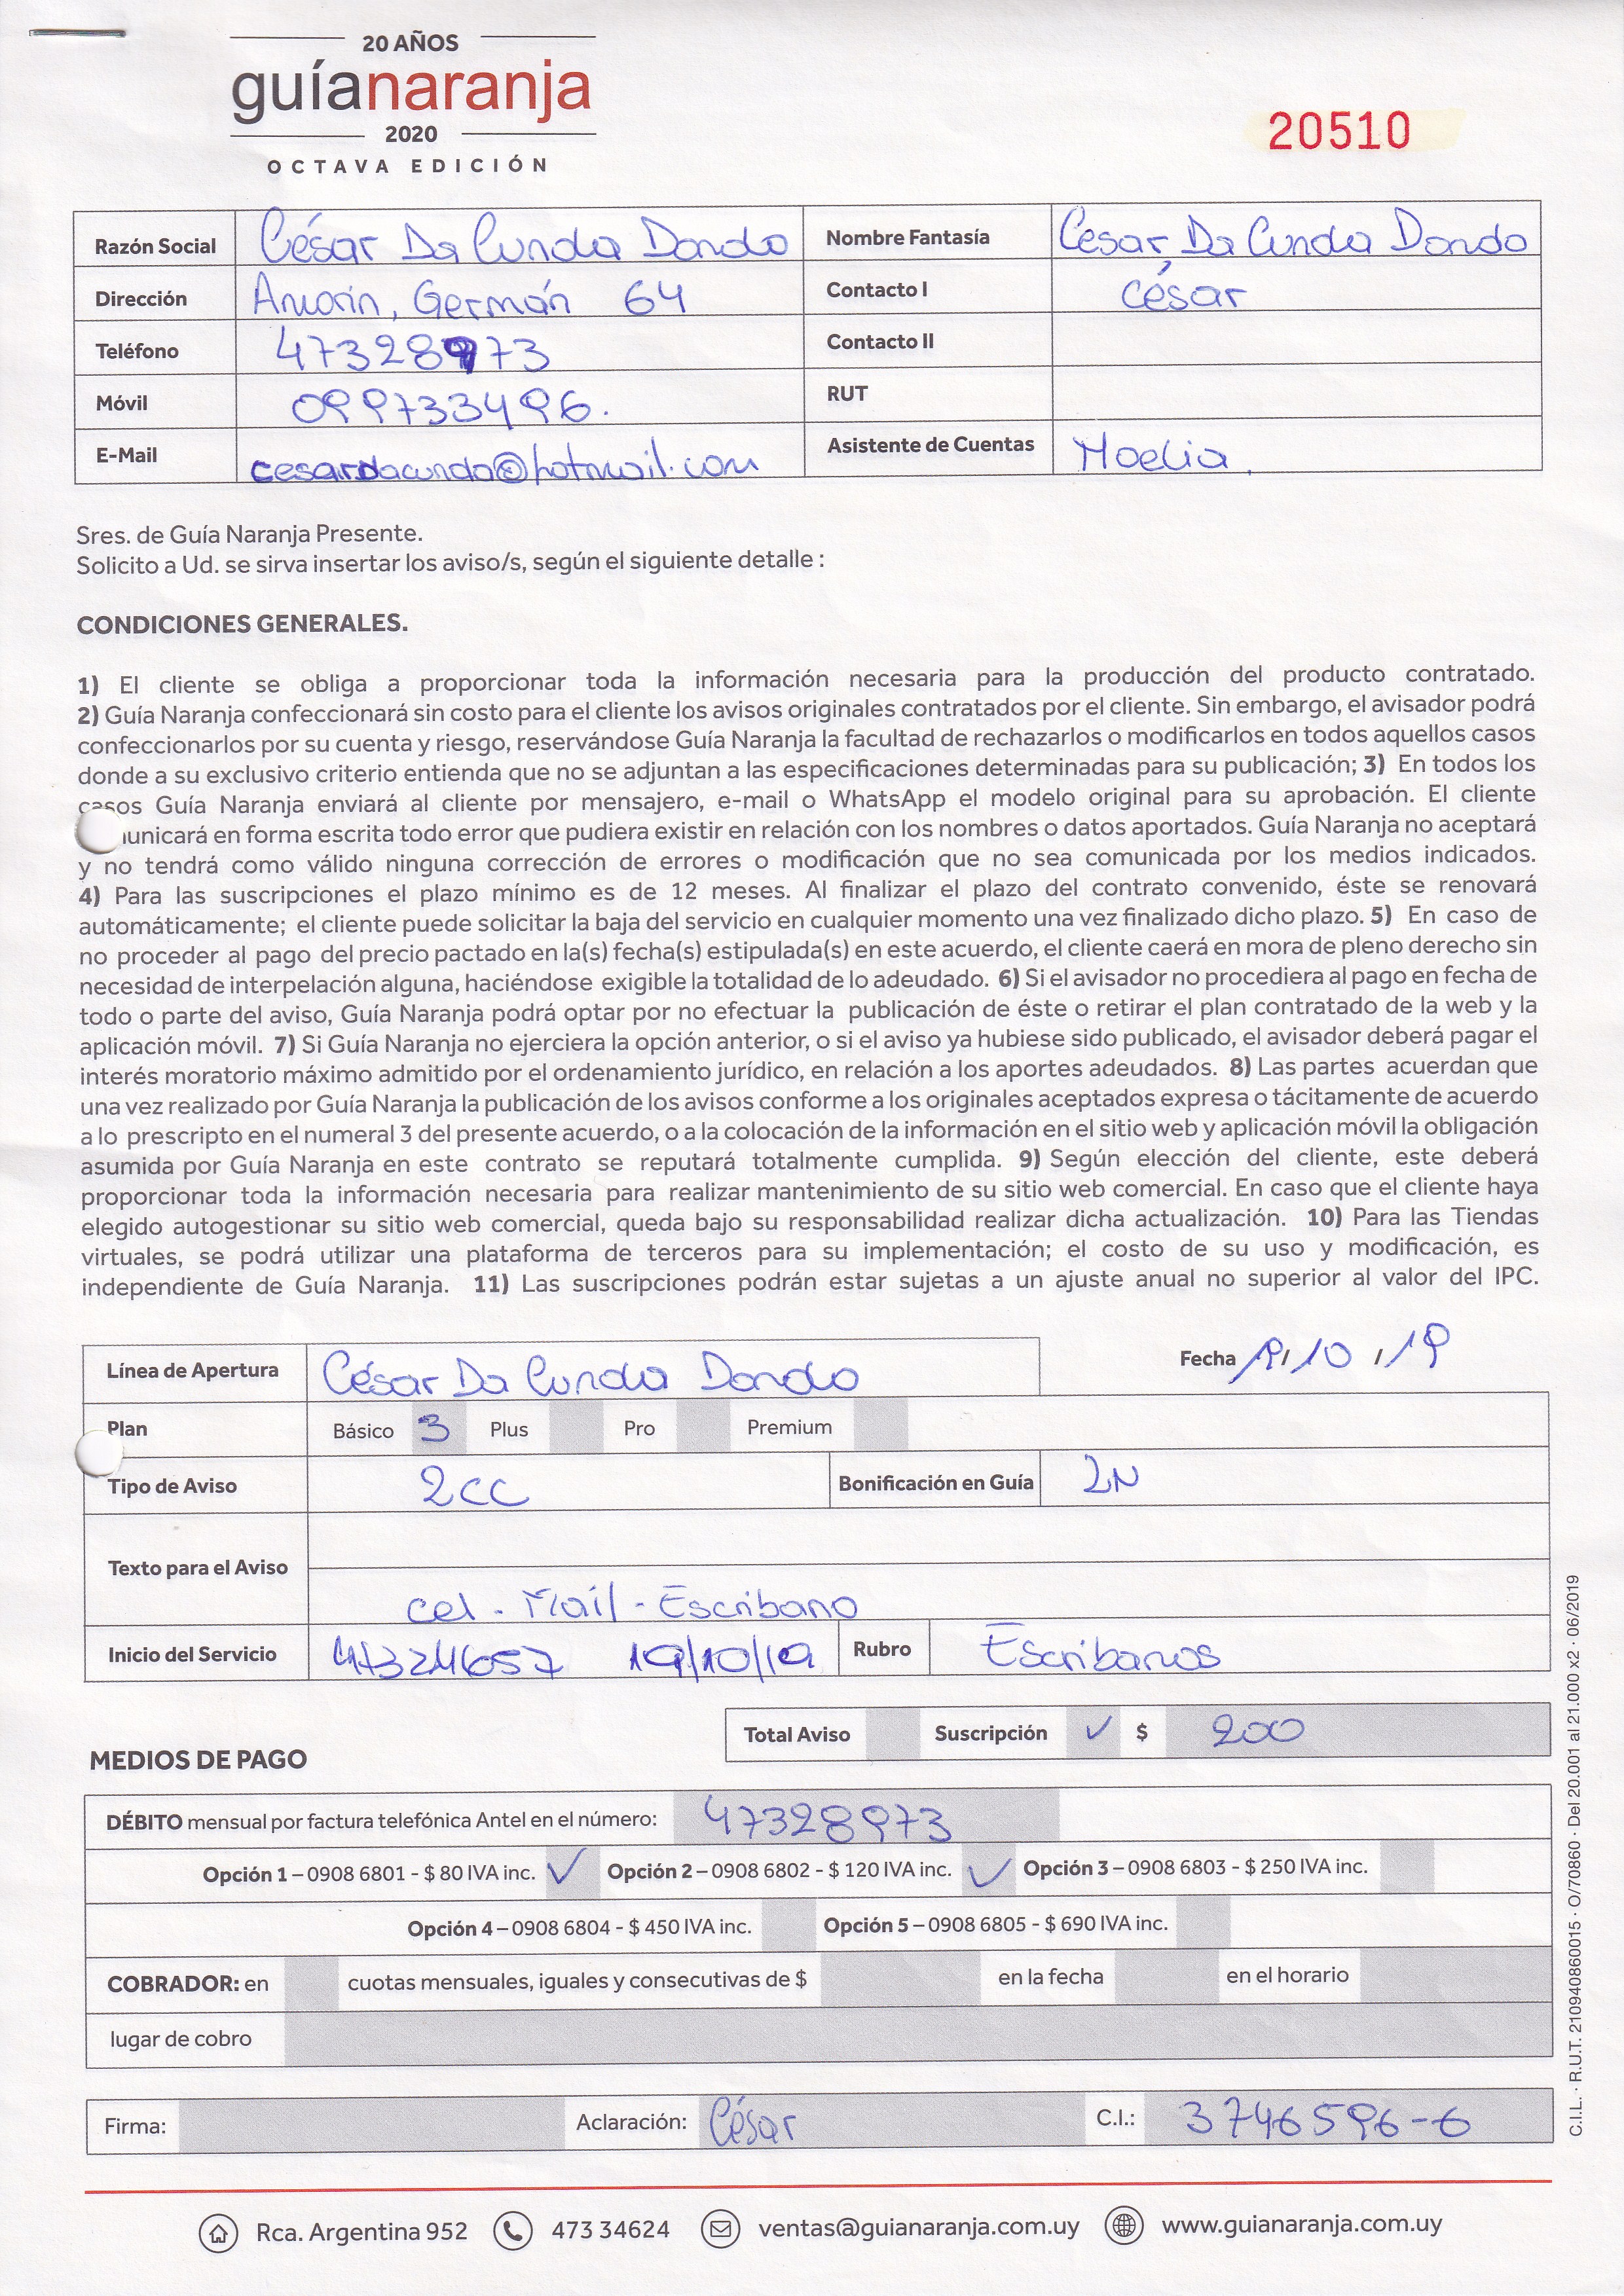 20 AÑOS
guíanaranja
2020
OCTAVA EDICIÓN
20510
Razón Social César Da Cunda Dondo Nombre Fantasía César Da Cunda Dondo
Dirección Amorín, Germán 64 Contacto I César
Teléfono 47328973 Contacto II
Móvil 099733496. RUT
E-Mail cesardacunda@hotmail.com Asistente de Cuentas Noelia.
Sres. de Guía Naranja Presente.
Solicito a Ud. se sirva insertar los aviso/s, según el siguiente detalle :
CONDICIONES GENERALES.
1) El cliente se obliga a proporcionar toda la información necesaria para la producción del producto contratado.
2) Guía Naranja confeccionará sin costo para el cliente los avisos originales contratados por el cliente. Sin embargo, el avisador podrá
confeccionarlos por su cuenta y riesgo, reservándose Guía Naranja la facultad de rechazarlos o modificarlos en todos aquellos casos
donde a su exclusivo criterio entienda que no se adjuntan a las especificaciones determinadas para su publicación; 3) En todos los
casos Guía Naranja enviará al cliente por mensajero, e-mail o WhatsApp el modelo original para su aprobación. El cliente
unicará en forma escrita todo error que pudiera existir en relación con los nombres o datos aportados. Guía Naranja no aceptará
y no tendrá como válido ninguna corrección de errores o modificación que no sea comunicada por los medios indicados.
4) Para las suscripciones el plazo mínimo es de 12 meses. Al finalizar el plazo del contrato convenido, éste se renovará
automáticamente; el cliente puede solicitar la baja del servicio en cualquier momento una vez finalizado dicho plazo. 5) En caso de
no proceder al pago del precio pactado en la(s) fecha(s) estipulada(s) en este acuerdo, el cliente caerá en mora de pleno derecho sin
necesidad de interpelación alguna, haciéndose exigible la totalidad de lo adeudado. 6) Si el avisador no procediera al pago en fecha de
todo o parte del aviso, Guía Naranja podrá optar por no efectuar la publicación de éste o retirar el plan contratado de la web y la
aplicación móvil. 7) Si Guía Naranja no ejerciera la opción anterior, o si el aviso ya hubiese sido publicado, el avisador deberá pagar el
interés moratorio máximo admitido por el ordenamiento jurídico, en relación a los aportes adeudados. 8) Las partes acuerdan que
una vez realizado por Guía Naranja la publicación de los avisos conforme a los originales aceptados expresa o tácitamente de acuerdo
a lo prescripto en el numeral 3 del presente acuerdo, o a la colocación de la información en el sitio web y aplicación móvil la obligación
asumida por Guía Naranja en este contrato se reputará totalmente cumplida. 9) Según elección del cliente, este deberá
proporcionar toda la información necesaria para realizar mantenimiento de su sitio web comercial. En caso que el cliente haya
elegido autogestionar su sitio web comercial, queda bajo su responsabilidad realizar dicha actualización. 10) Para las Tiendas
virtuales, se podrá utilizar una plataforma de terceros para su implementación; el costo de su uso y modificación, es
independiente de Guía Naranja. 11) Las suscripciones podrán estar sujetas a un ajuste anual no superior al valor del IPC.
Línea de Apertura César Da Cunda Dondo Fecha /10 /19
Plan Básico 3 Plus Pro Premium
Tipo de Aviso 2CC Bonificación en Guía 2N
Texto para el Aviso
cel - Mail - Escribano
Inicio del Servicio 47324657 19/10/19 Rubro Escribanos
Total Aviso Suscripción ✓ $ 200
MEDIOS DE PAGO
DÉBITO mensual por factura telefónica Antel en el número: 47328973
Opción 1 – 0908 6801 - $ 80 IVA inc. ✓ Opción 2 – 0908 6802 - $ 120 IVA inc. ✓ Opción 3 – 0908 6803 - $ 250 IVA inc.
Opción 4 – 0908 6804 - $ 450 IVA inc. Opción 5 – 0908 6805 - $ 690 IVA inc.
COBRADOR: en cuotas mensuales, iguales y consecutivas de $ en la fecha en el horario
lugar de cobro
Firma: Aclaración: César C.I.: 3746596-6
C.I.L. · R.U.T. 210940860015 · O/70860 · Del 20.001 al 21.000 x2 · 06/2019
Rca. Argentina 952 473 34624 ventas@guianaranja.com.uy www.guianaranja.com.uy